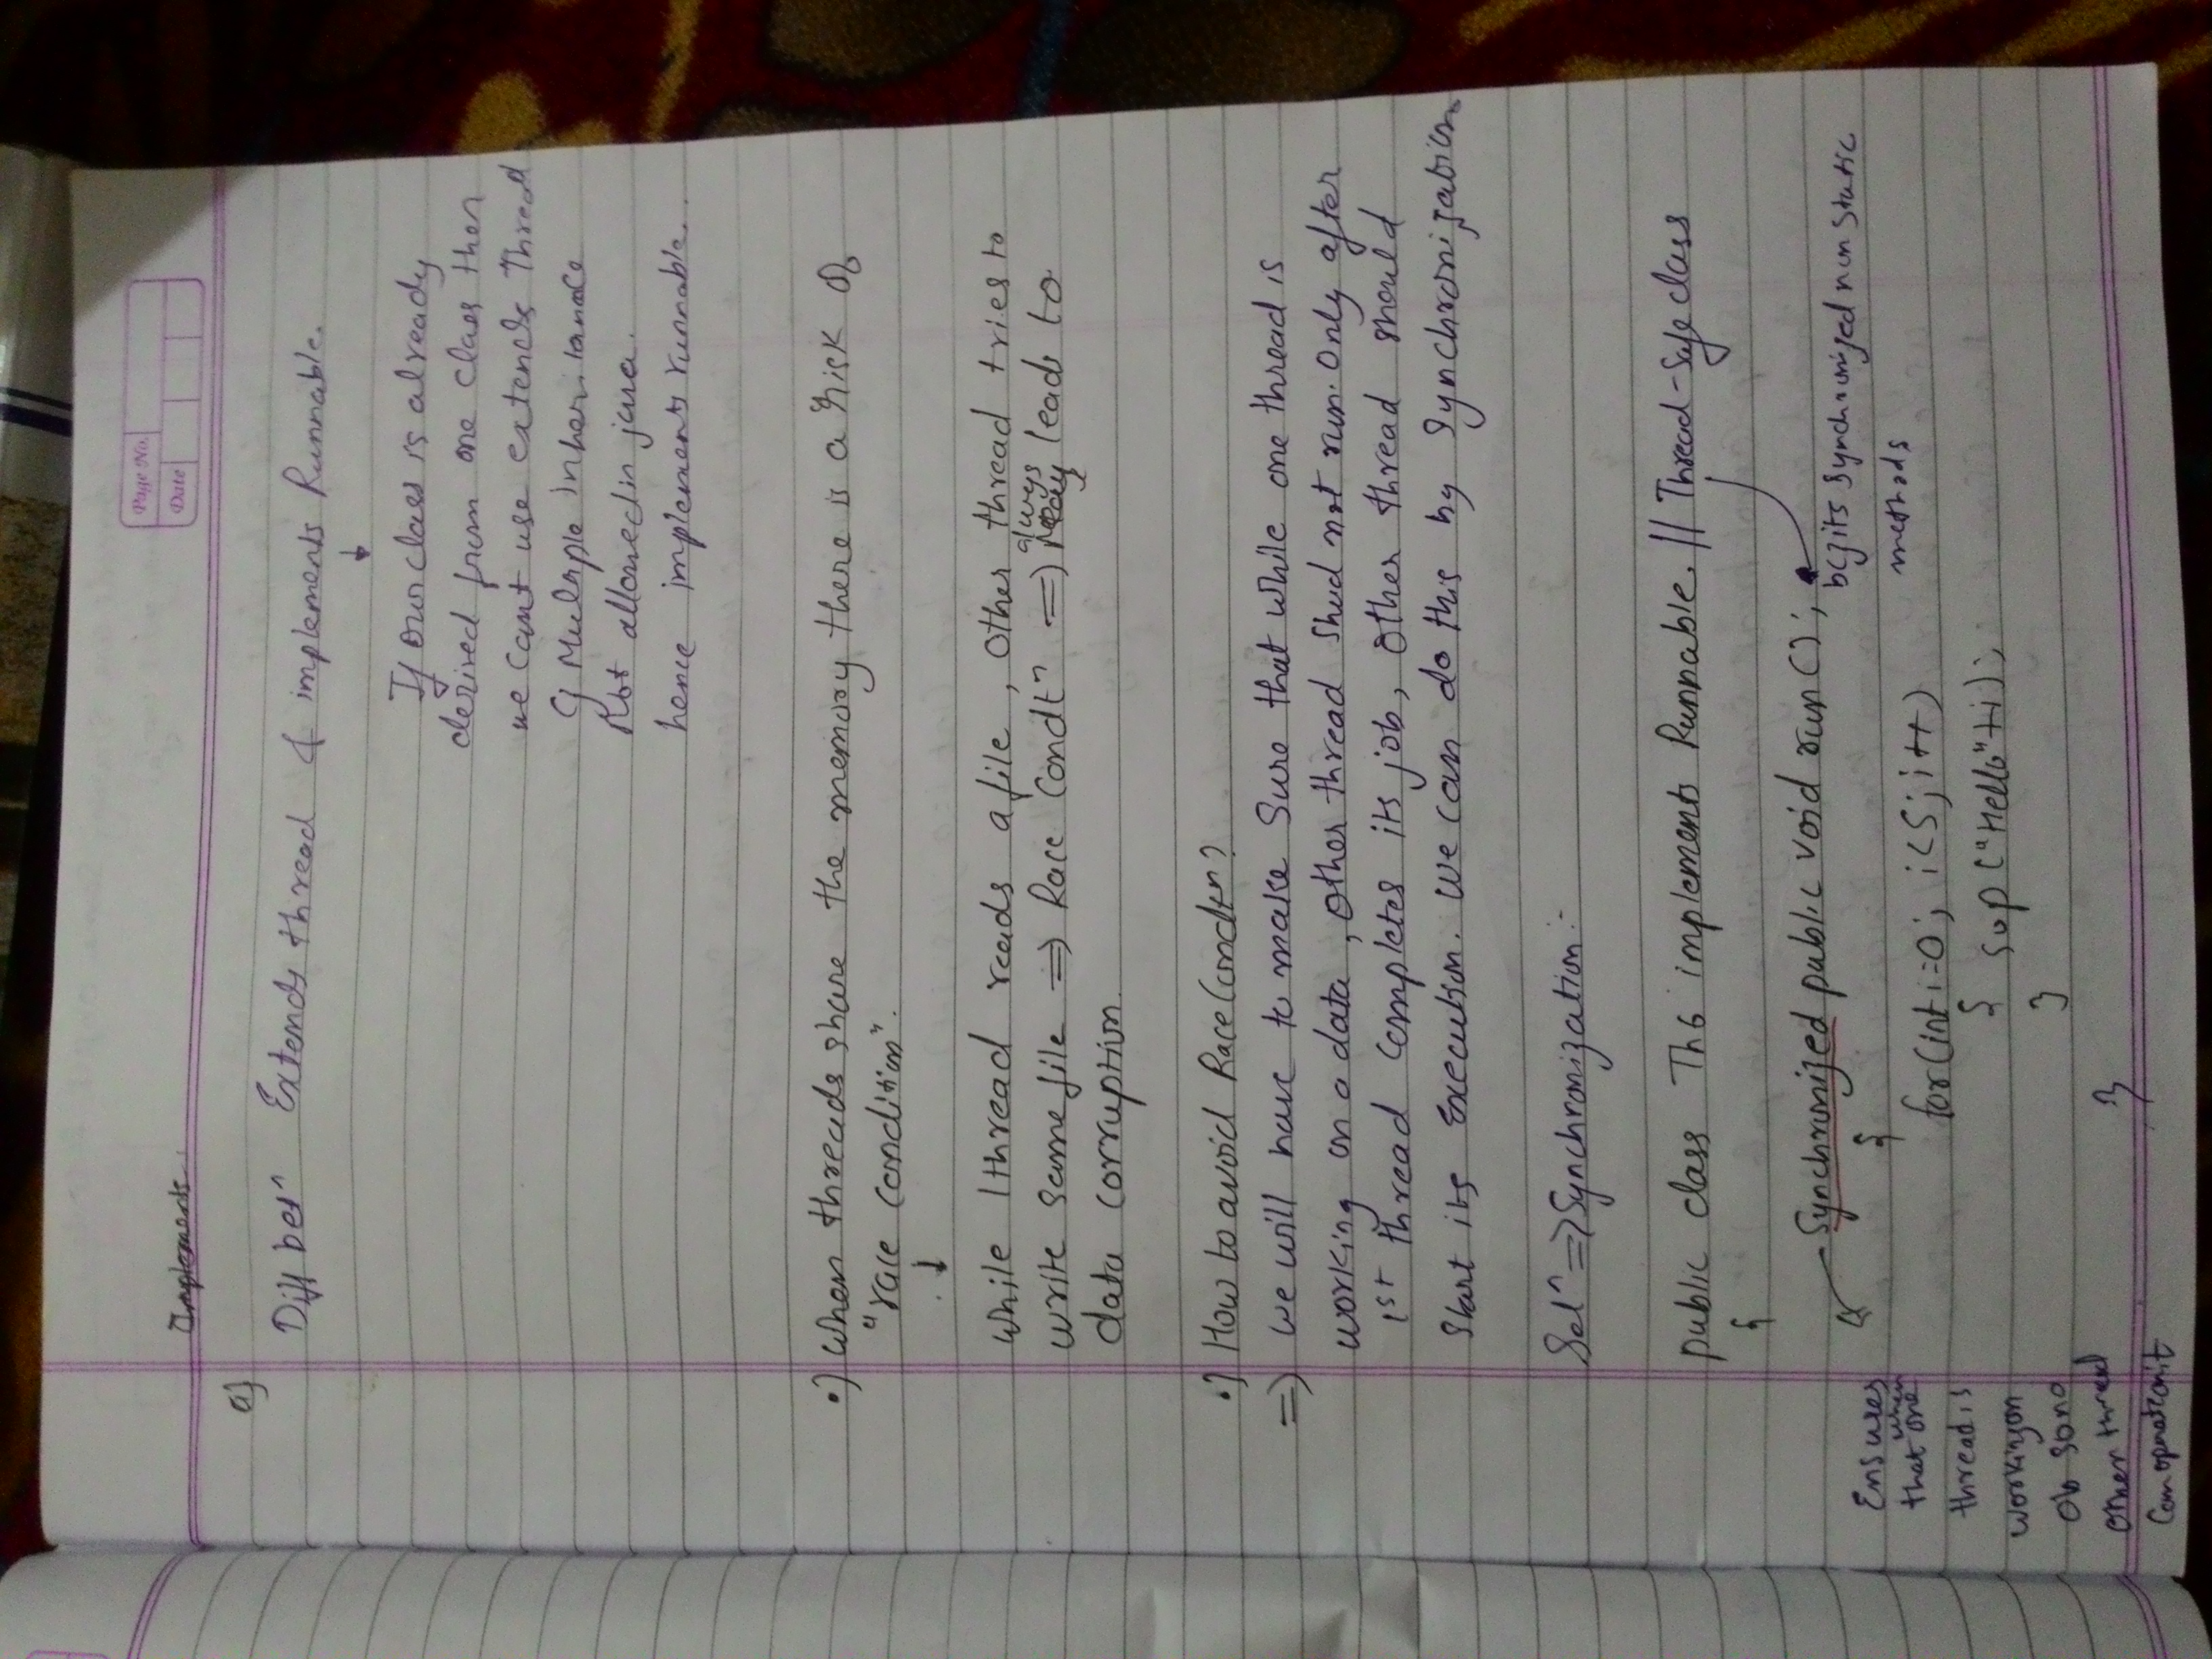 Page No.
Date
Implements
a)
Diff betn Extends thread & implements Runnable.
↓
If our class is already
derived from one class then
we cant use extends Thread
Multiple Inheritance
Not allowed in java.
hence implements runnable.
•) When threads share the memory there is a risk of
"race condition".
↓
while 1 thread reads a file, other thread tries to
write same file => Race Condtn => always leads to
data corruption.
•) How to avoid Race Condtn?
=> we will have to make sure that while one thread is
working on a data, other thread shud not run. Only after
1st thread completes its job, other thread should
start its execution. We can do this by Synchronization
Soln => Synchronization :-
public class Th6 implements Runnable. // Thread-Safe class
{
Synchronized public void run();
bcz its synchronized non static
methods
{
for(int i=0; i<5; i++)
{ sop("Hello"+i);
}
}
Ensures
that when one
thread is
working on
Ob
other thread
can operate on it